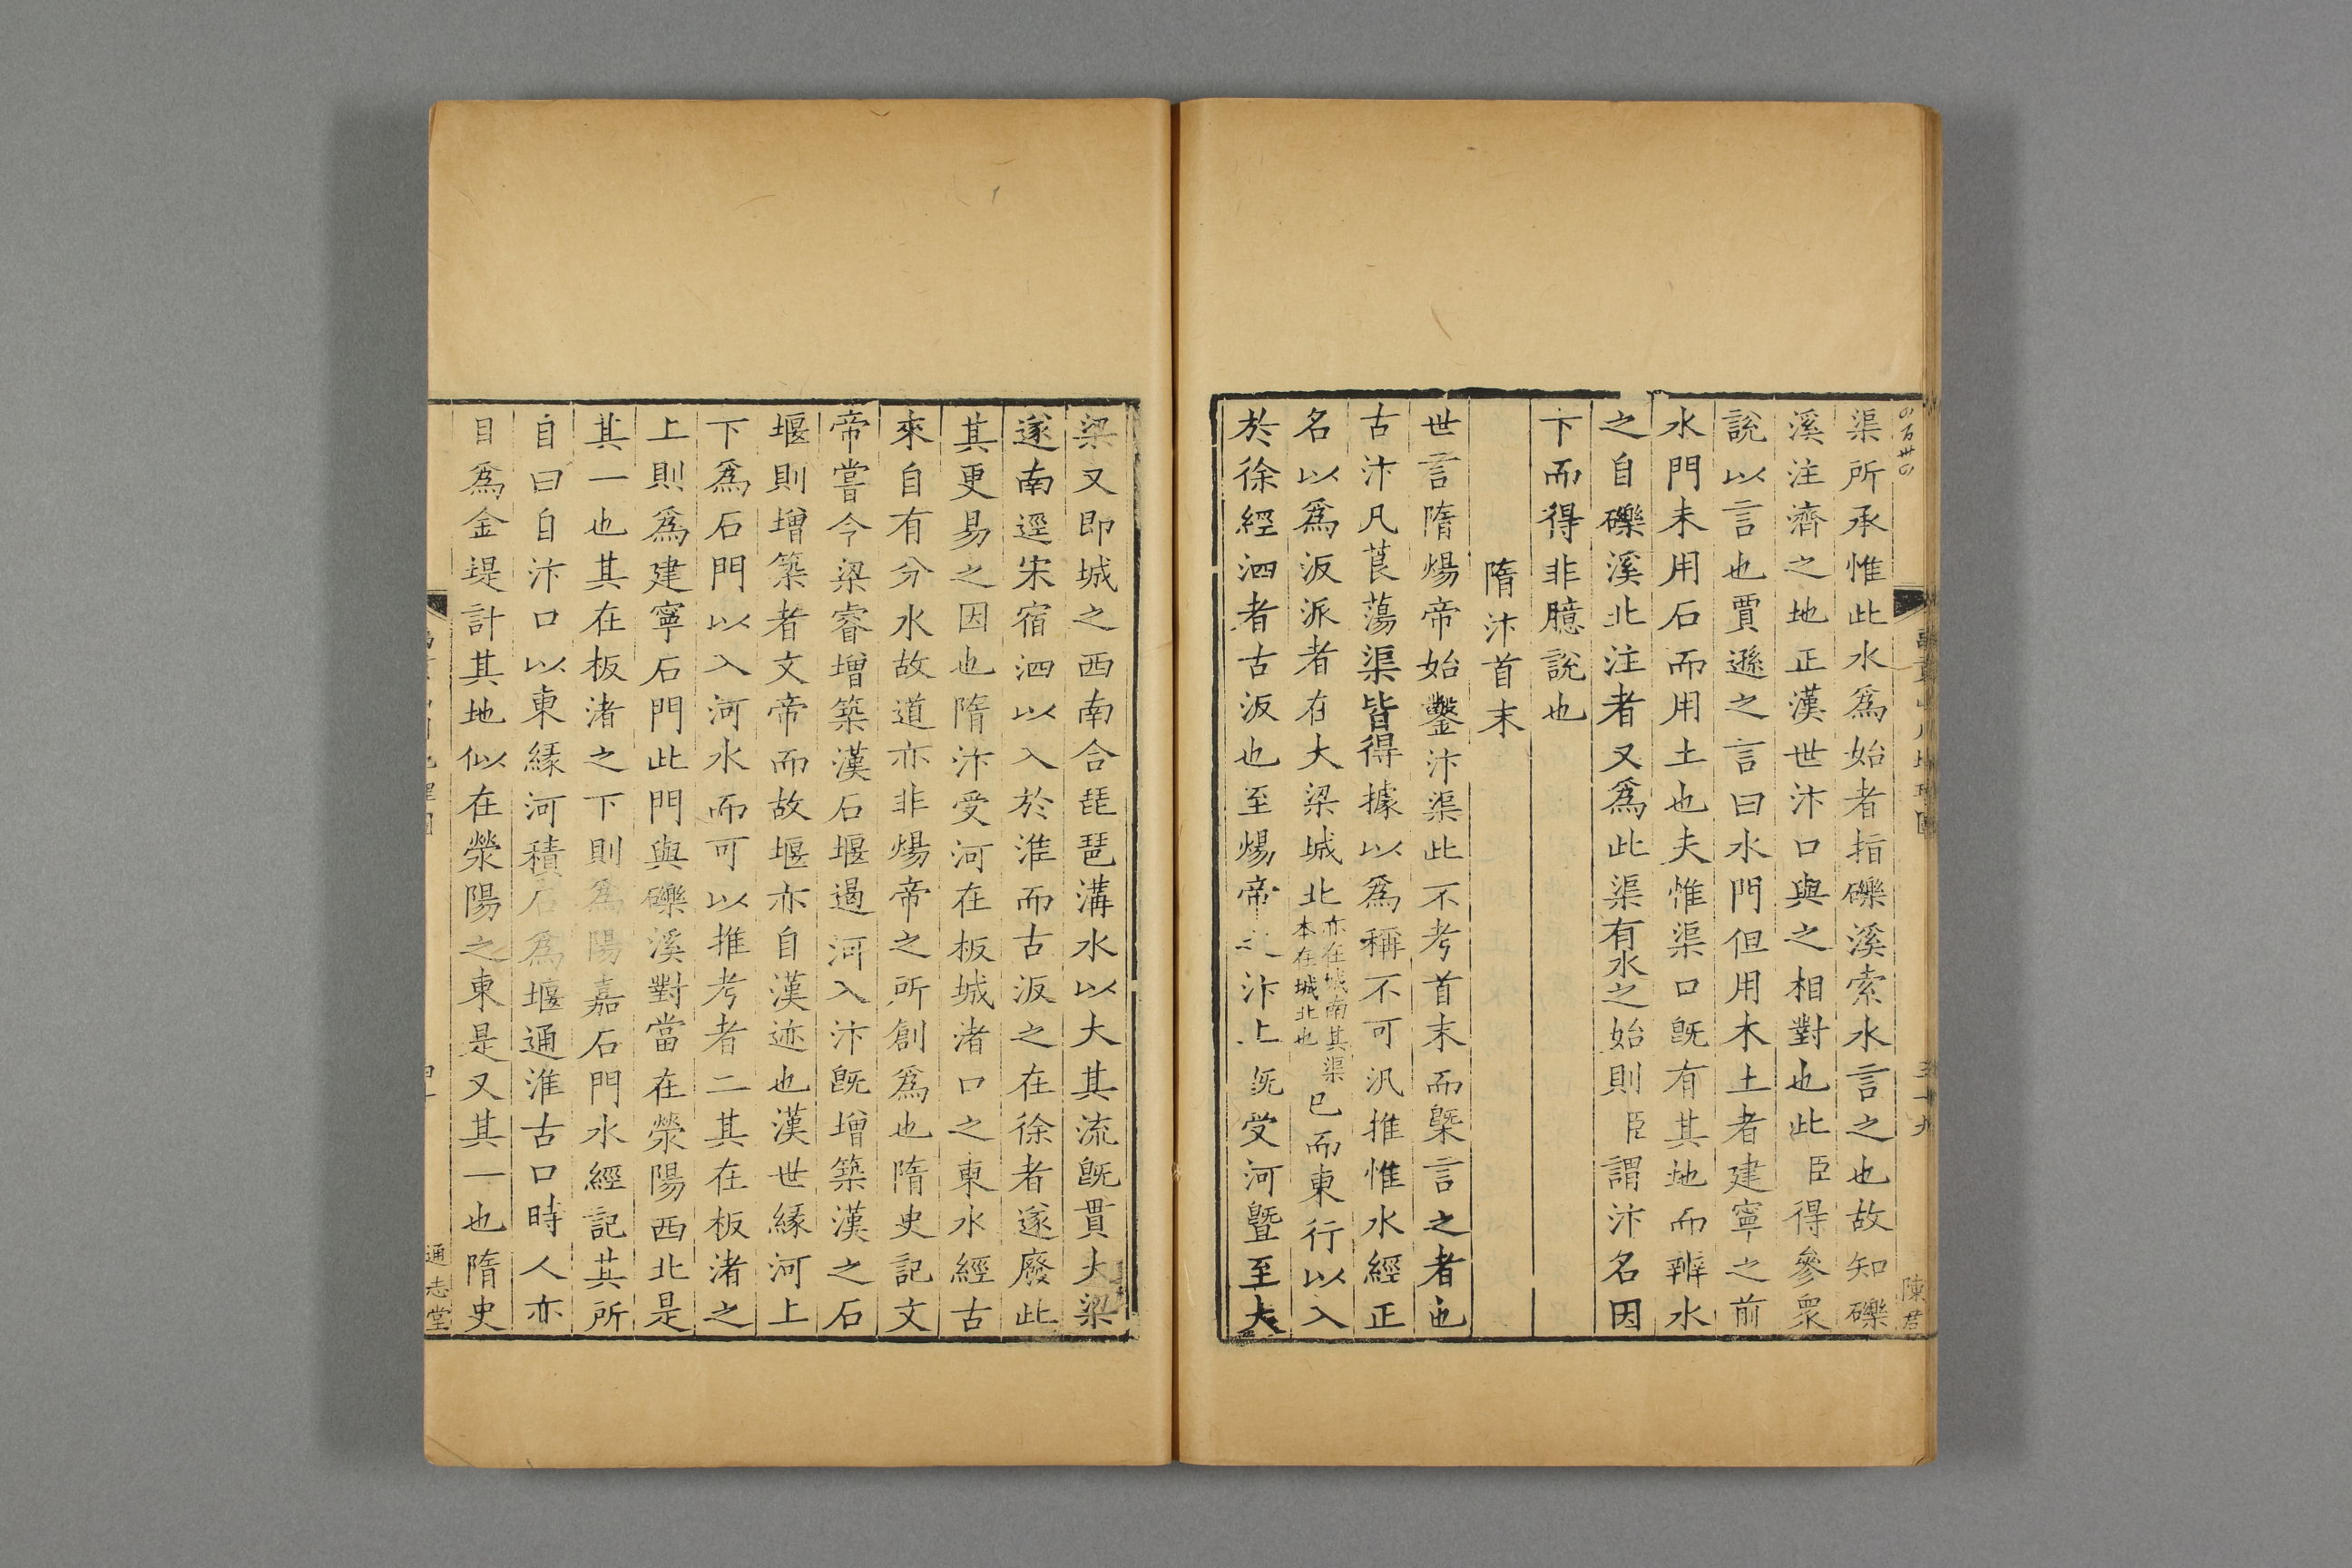 渠所承惟此水爲始者指礫溪索水言之也故知礫
溪注濟之地正漢世汴口與之相對也此臣得參衆
說以言也賈遜之言曰水門但用木土者建寧之前
水門未用石而用土也夫惟渠口旣有其地而辨水
之自礫溪北注者又爲此渠有水之始則臣謂汴名因
卞而得非臆說也
隋汴首末
世言隋煬帝始鑿汴渠此不考首末而槩言之者也
古汴凡莨蕩渠皆得據以爲稱不可汎推惟水經正
名以爲汳派者在大梁城北亦在城南其渠本在城北也已而東行以入
於徐經泗者古汳也至煬帝之汴上旣受河曁至大
梁又即城之西南合琵琶溝水以大其流旣貫大梁
遂南逕宋宿泗以入於淮而古汳之在徐者遂廢此
其更易之因也隋汴受河在板城渚口之東水經古
來自有分水故道亦非煬帝之所創爲也隋史記文
帝嘗令梁睿增築漢石堰遏河入汴旣增築漢之石
堰則增築者文帝而故堰亦自漢迹也漢世緣河上
下爲石門以入河水而可以推考者二其在板渚之
上則爲建寧石門此門與礫溪對當在滎陽西北是
其一也其在板渚之下則爲陽嘉石門水經記其所
自曰自汴口以東緣河積石爲堰通淮古口時人亦
目爲金堤計其地似在滎陽之東是又其一也隋史
通志堂